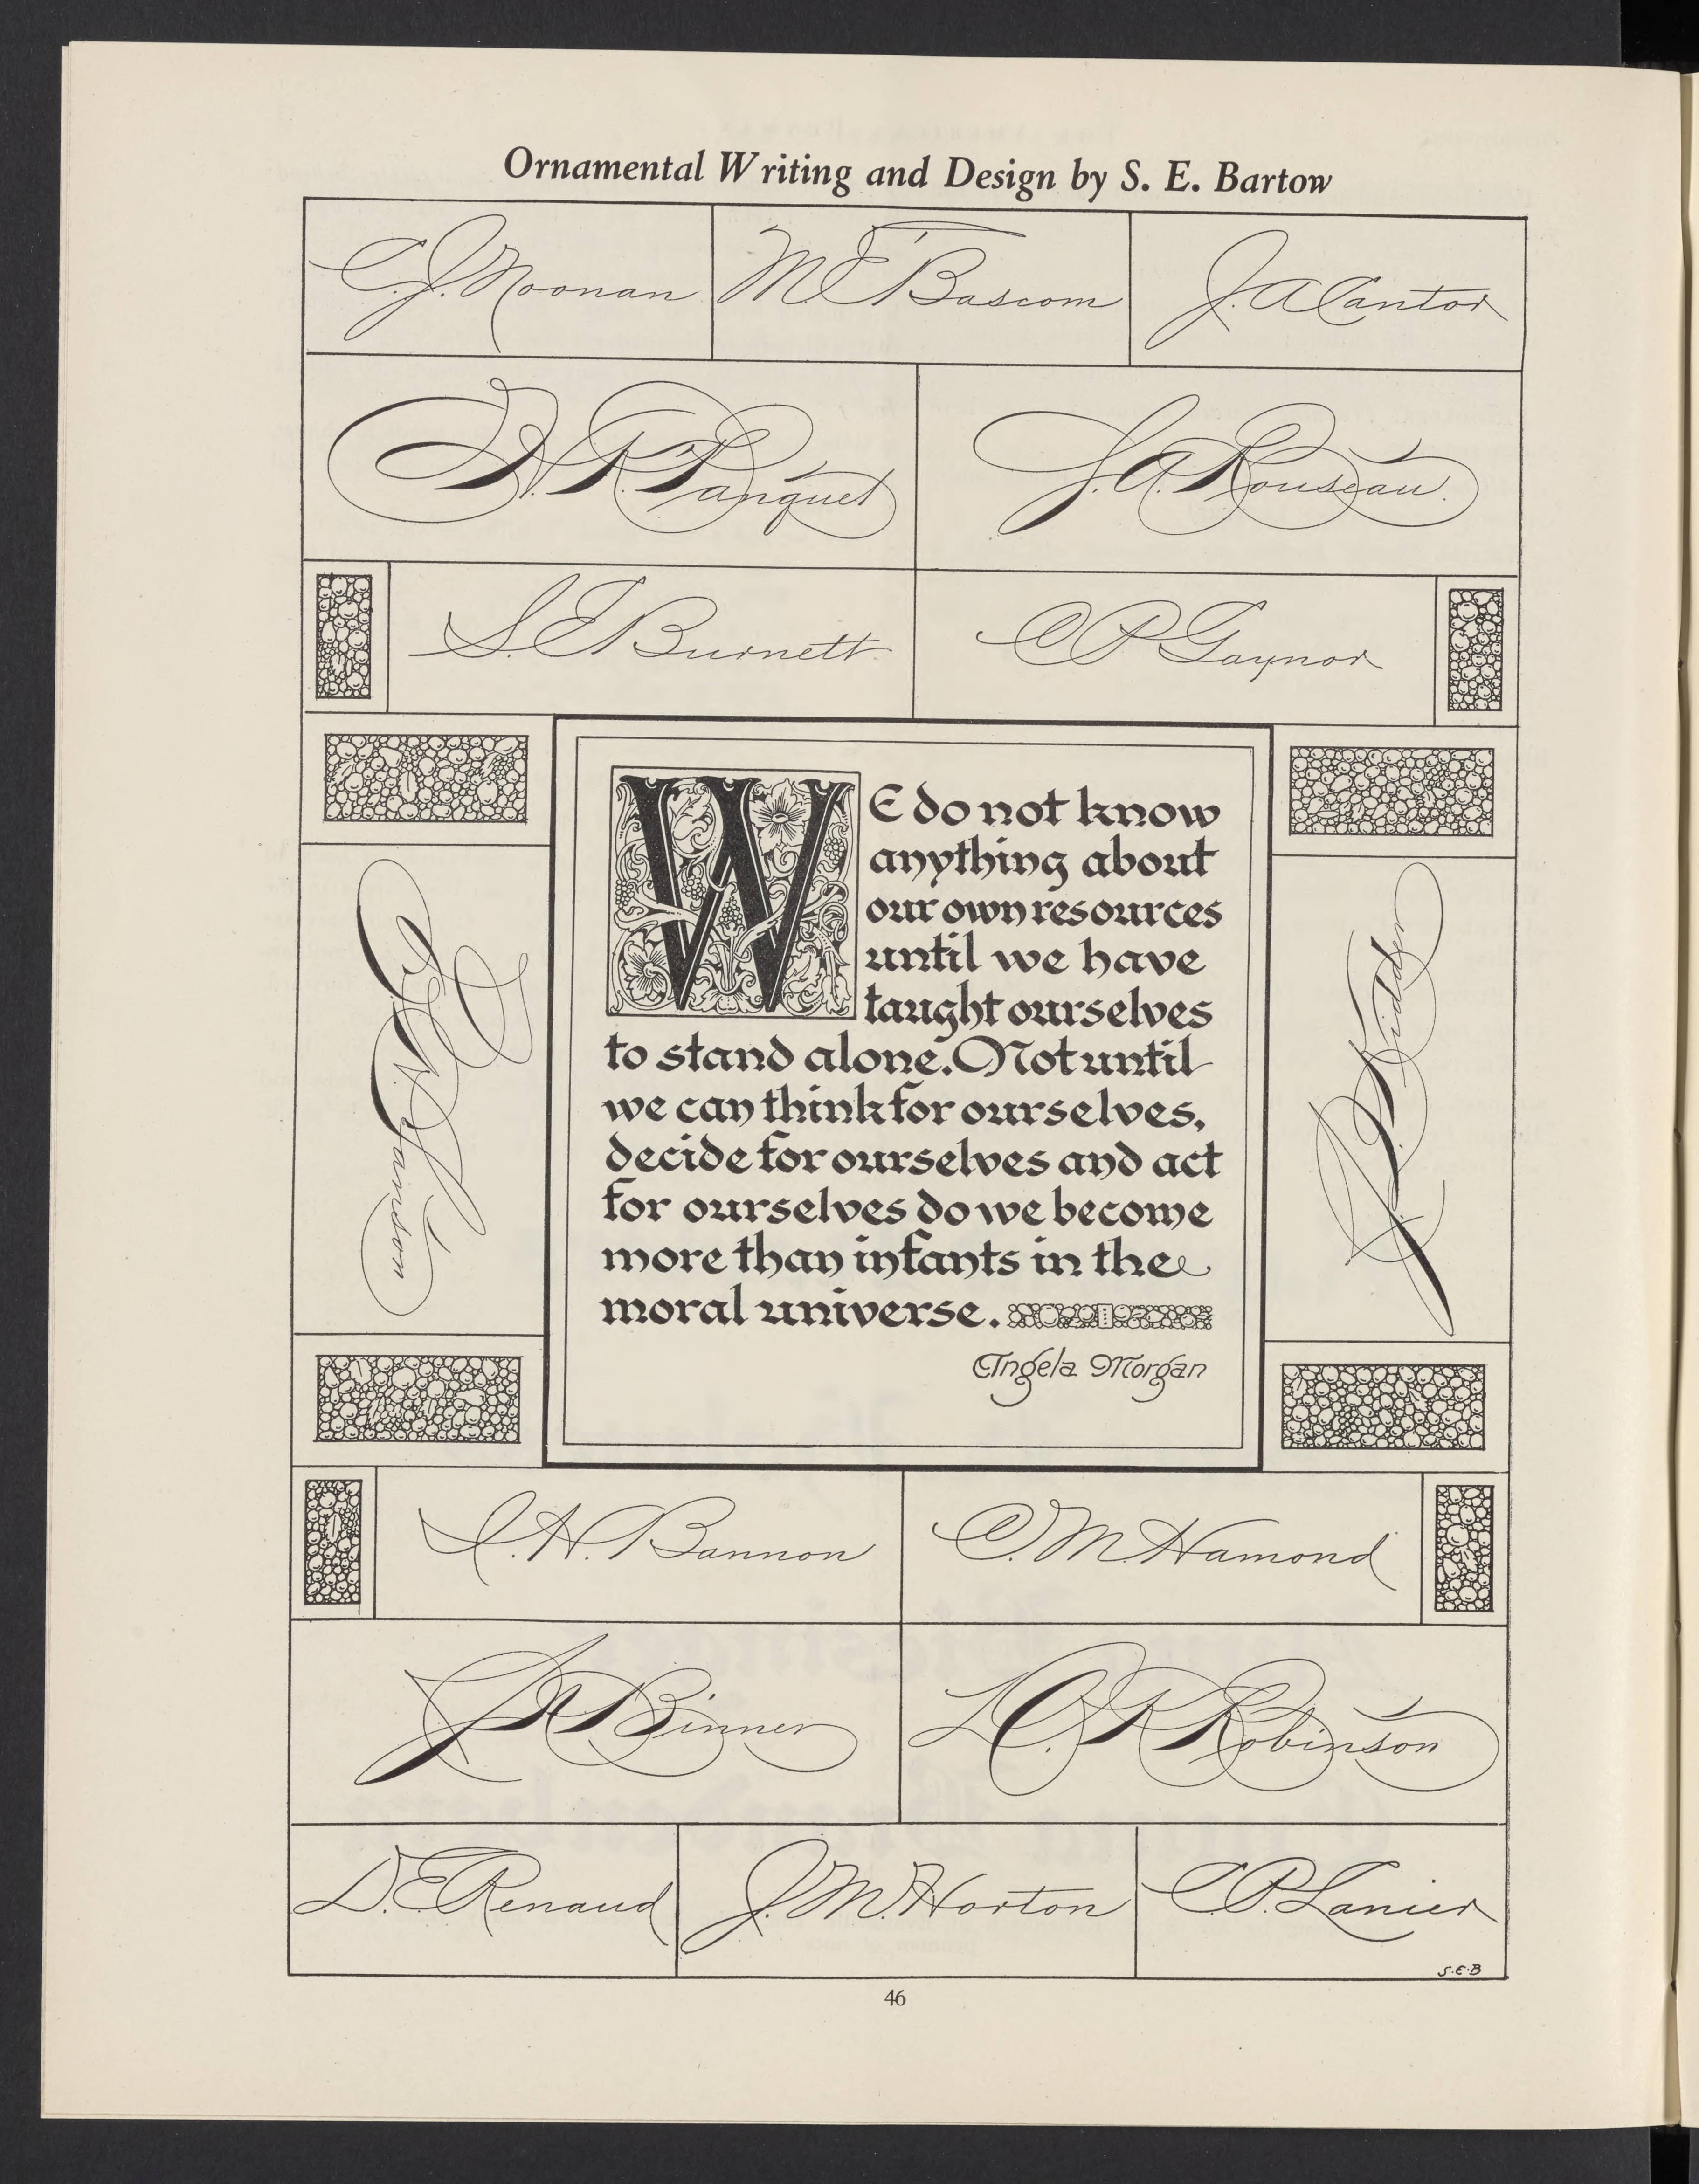 Ornamental Writing and Design by S. E. Bartow
C. J. Noonan
M. E. Bascom
J. A. Cantor
Panquet
J. A. Rouseau.
S. E. Burnett.
C P Gaynor
WE do not know
anything about
our own resources
until we have
taught ourselves
to stand alone. Not until
we can think for ourselves,
decide for ourselves and act
for ourselves do we become
more than infants in the
moral universe.
Angela Morgan
Jamson
Kidder
I. H. Bannon
O. M. Hamond
Binner
Robinson
D. E. Renaud
J. M. Horton
C. P. Lanier
S·E·B
46